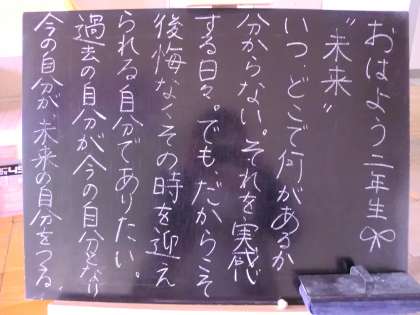 おはよう二年生
"未来"
いつ、どこで何があるか
分からない。それを実感
する日々。でも、だからこそ
後悔なくその時を迎え
られる自分でありたい。
過去の自分が今の自分となり
今の自分が、未来の自分をつくる。